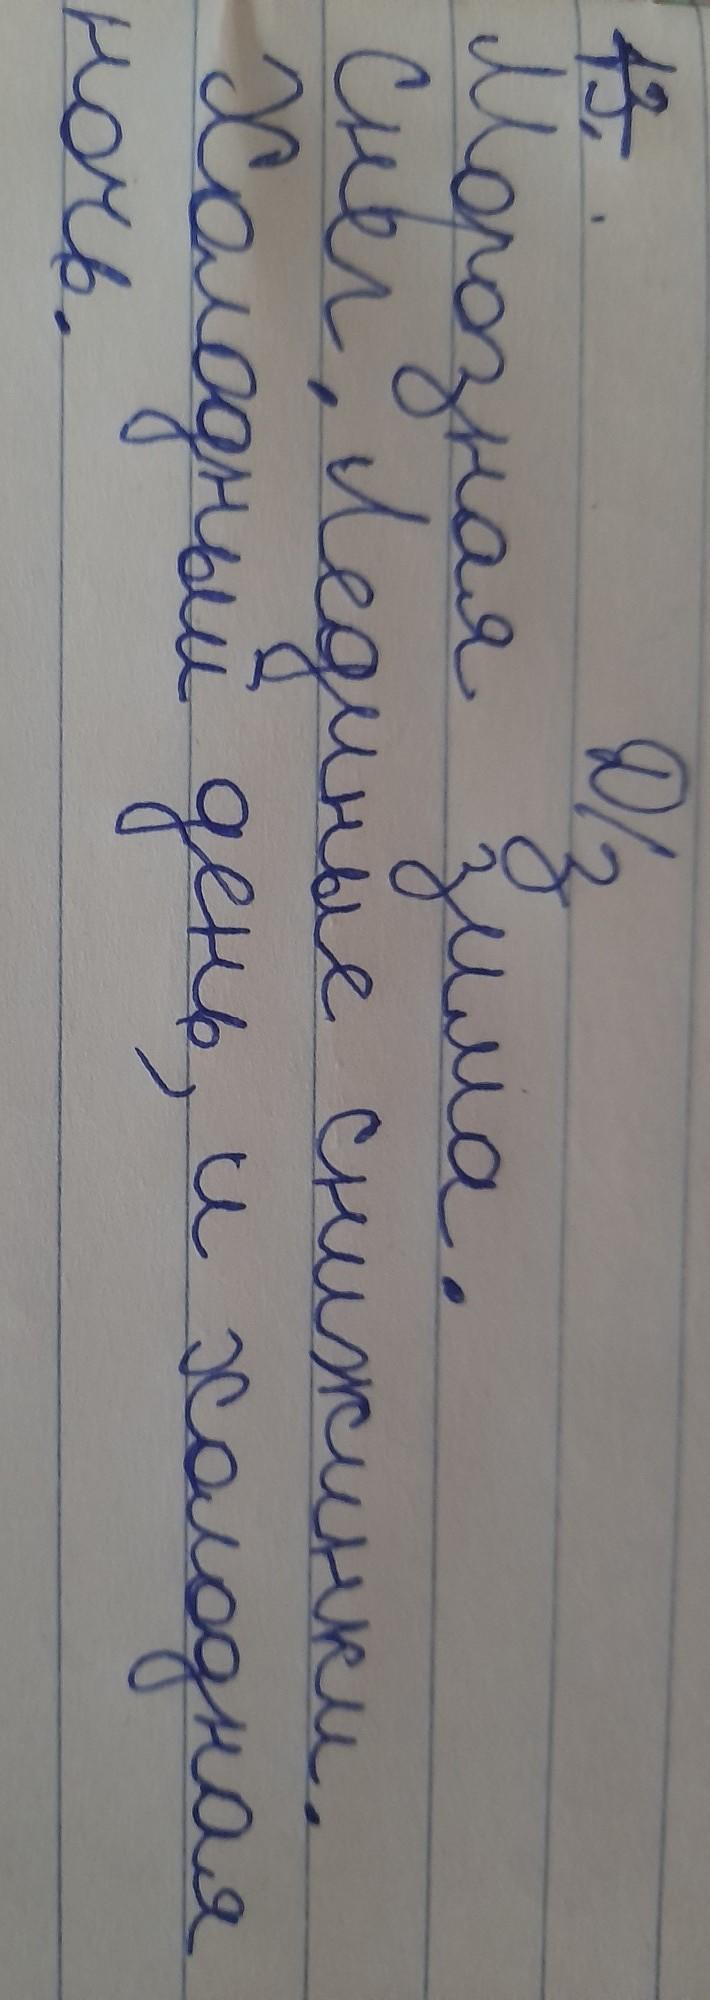 Д/з
Морозная зима.
Снег. Ледяные снижинки.
Холодный день, и холодная
ночь.